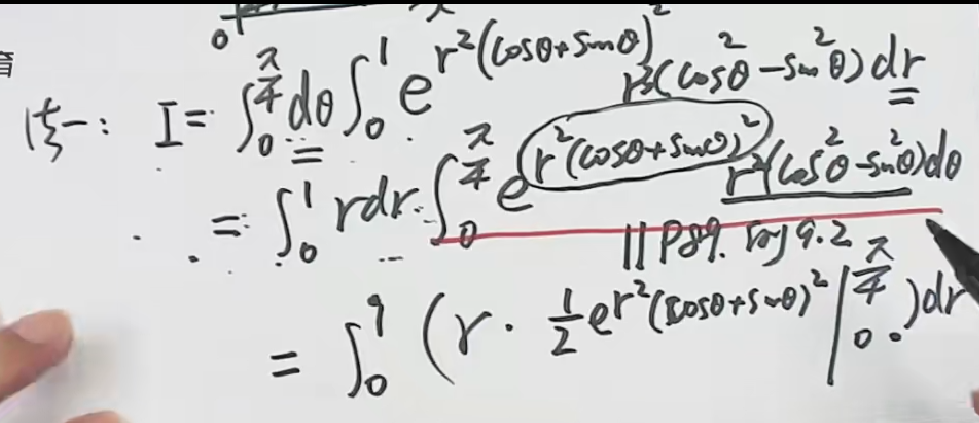 育
法一: I = ∫₀^{π/4} dθ ∫₀¹ e^{r²(cosθ+sinθ)²} r³(cos²θ-sin²θ)dr
= ∫₀¹ r dr · ∫₀^{π/4} e^{r²(cosθ+sinθ)²} r²(cos²θ-sin²θ)dθ
|| P89. 9.2
= ∫₀¹ (r · ½ e^{r²(cosθ+sinθ)²} |₀^{π/4}) dr